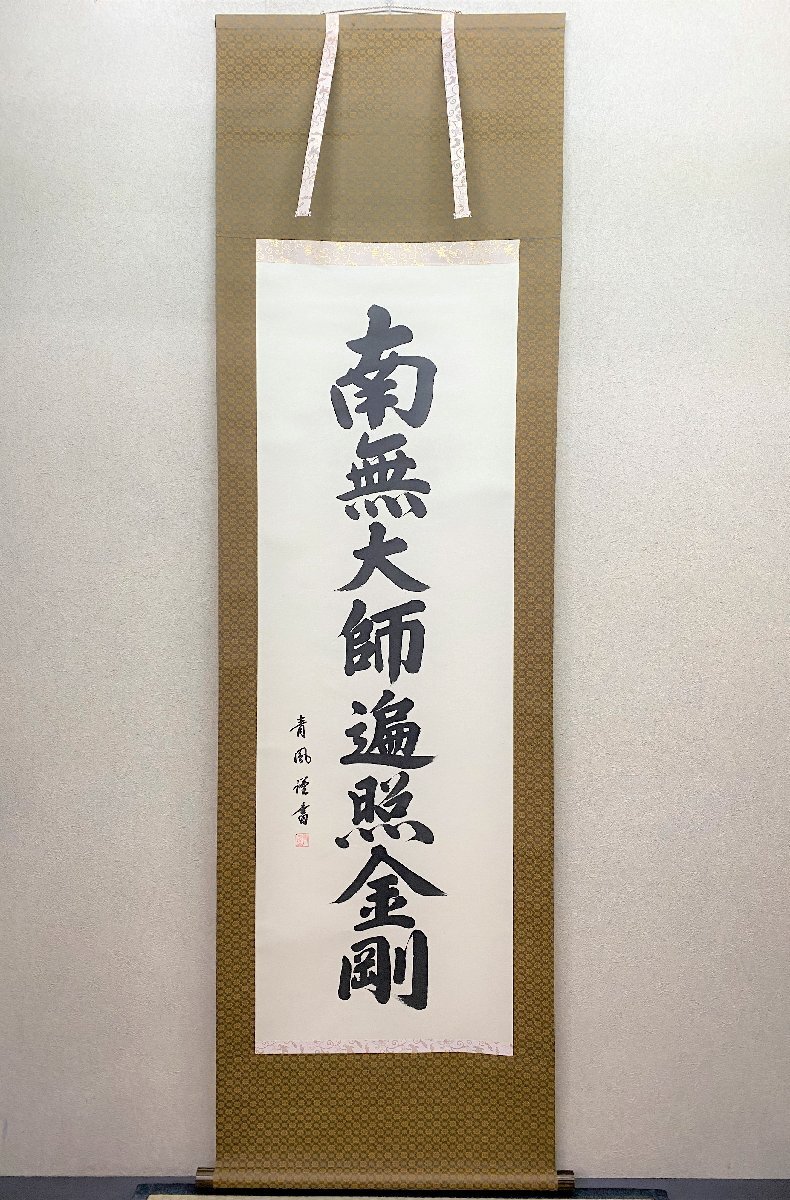 南無大師遍照金剛
青風謹書